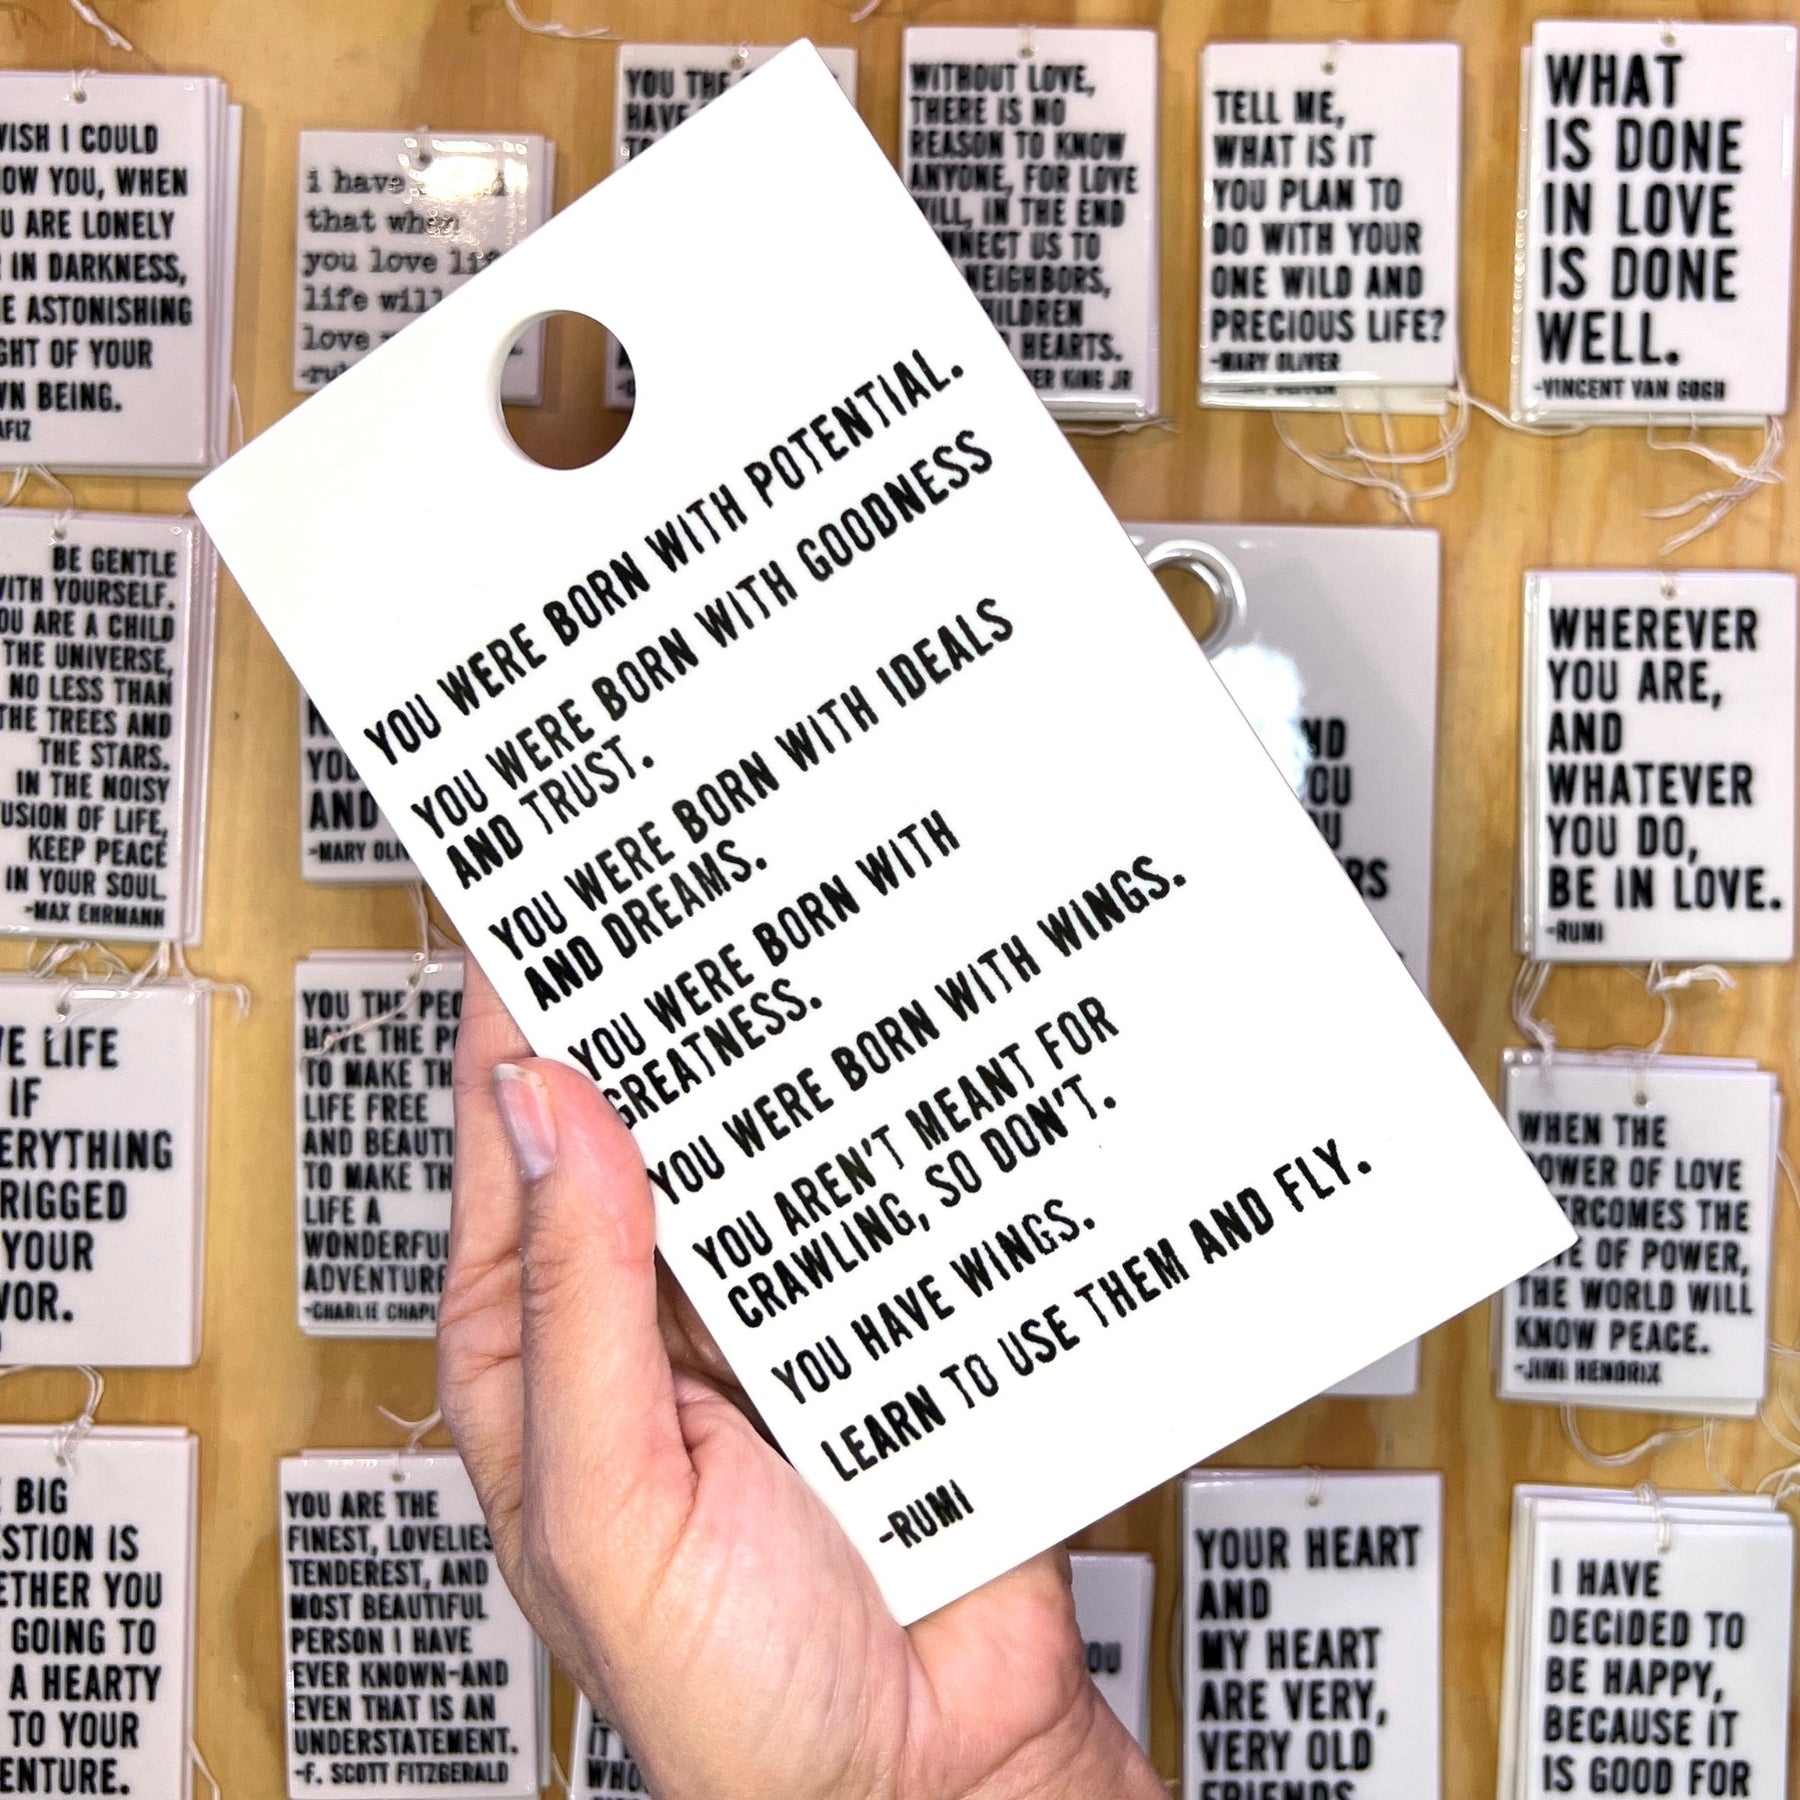 YOU WERE BORN WITH POTENTIAL.
YOU WERE BORN WITH GOODNESS
AND TRUST.
YOU WERE BORN WITH IDEALS
AND DREAMS.
YOU WERE BORN WITH
GREATNESS.
YOU WERE BORN WITH WINGS.
YOU AREN'T MEANT FOR
CRAWLING, SO DON'T.
YOU HAVE WINGS.
LEARN TO USE THEM AND FLY.
-RUMI
I COULD
YOU, WHEN
ARE LONELY
IN DARKNESS,
ASTONISHING
OF YOUR
BEING.
i have
that when
you love
life will
love
YOU THE
HAVE
WITHOUT LOVE,
THERE IS NO
REASON TO KNOW
ANYONE, FOR LOVE
WILL, IN THE END
US TO
NEIGHBORS,
HEARTS.
KING JR
TELL ME,
WHAT IS IT
YOU PLAN TO
DO WITH YOUR
ONE WILD AND
PRECIOUS LIFE?
-MARY OLIVER
WHAT
IS DONE
IN LOVE
IS DONE
WELL.
-VINCENT VAN GOGH
BE GENTLE
WITH YOURSELF.
YOU ARE A CHILD
THE UNIVERSE,
NO LESS THAN
THE TREES AND
THE STARS.
IN THE NOISY
OF LIFE,
KEEP PEACE
IN YOUR SOUL.
-MAX EHRMANN
AND
-MARY
WHEREVER
YOU ARE,
AND
WHATEVER
YOU DO,
BE IN LOVE.
-RUMI
LIFE
IF
RIGGED
YOUR
YOU THE
HAVE THE
TO MAKE
LIFE FREE
AND
TO MAKE
LIFE A
ADVENTURE
-CHARLIE
WHEN THE
POWER OF LOVE
OVERCOMES THE
OF POWER,
THE WORLD WILL
KNOW PEACE.
-JIMI HENDRIX
BIG
IS
YOU
GOING TO
A HEARTY
TO YOUR
YOU ARE THE
FINEST,
TENDEREST, AND
MOST BEAUTIFUL
PERSON I HAVE
EVER KNOWN-AND
EVEN THAT IS AN
UNDERSTATEMENT.
-F. SCOTT FITZGERALD
YOUR HEART
AND
MY HEART
ARE VERY,
VERY OLD
FRIENDS
I HAVE
DECIDED TO
BE HAPPY,
BECAUSE IT
IS GOOD FOR